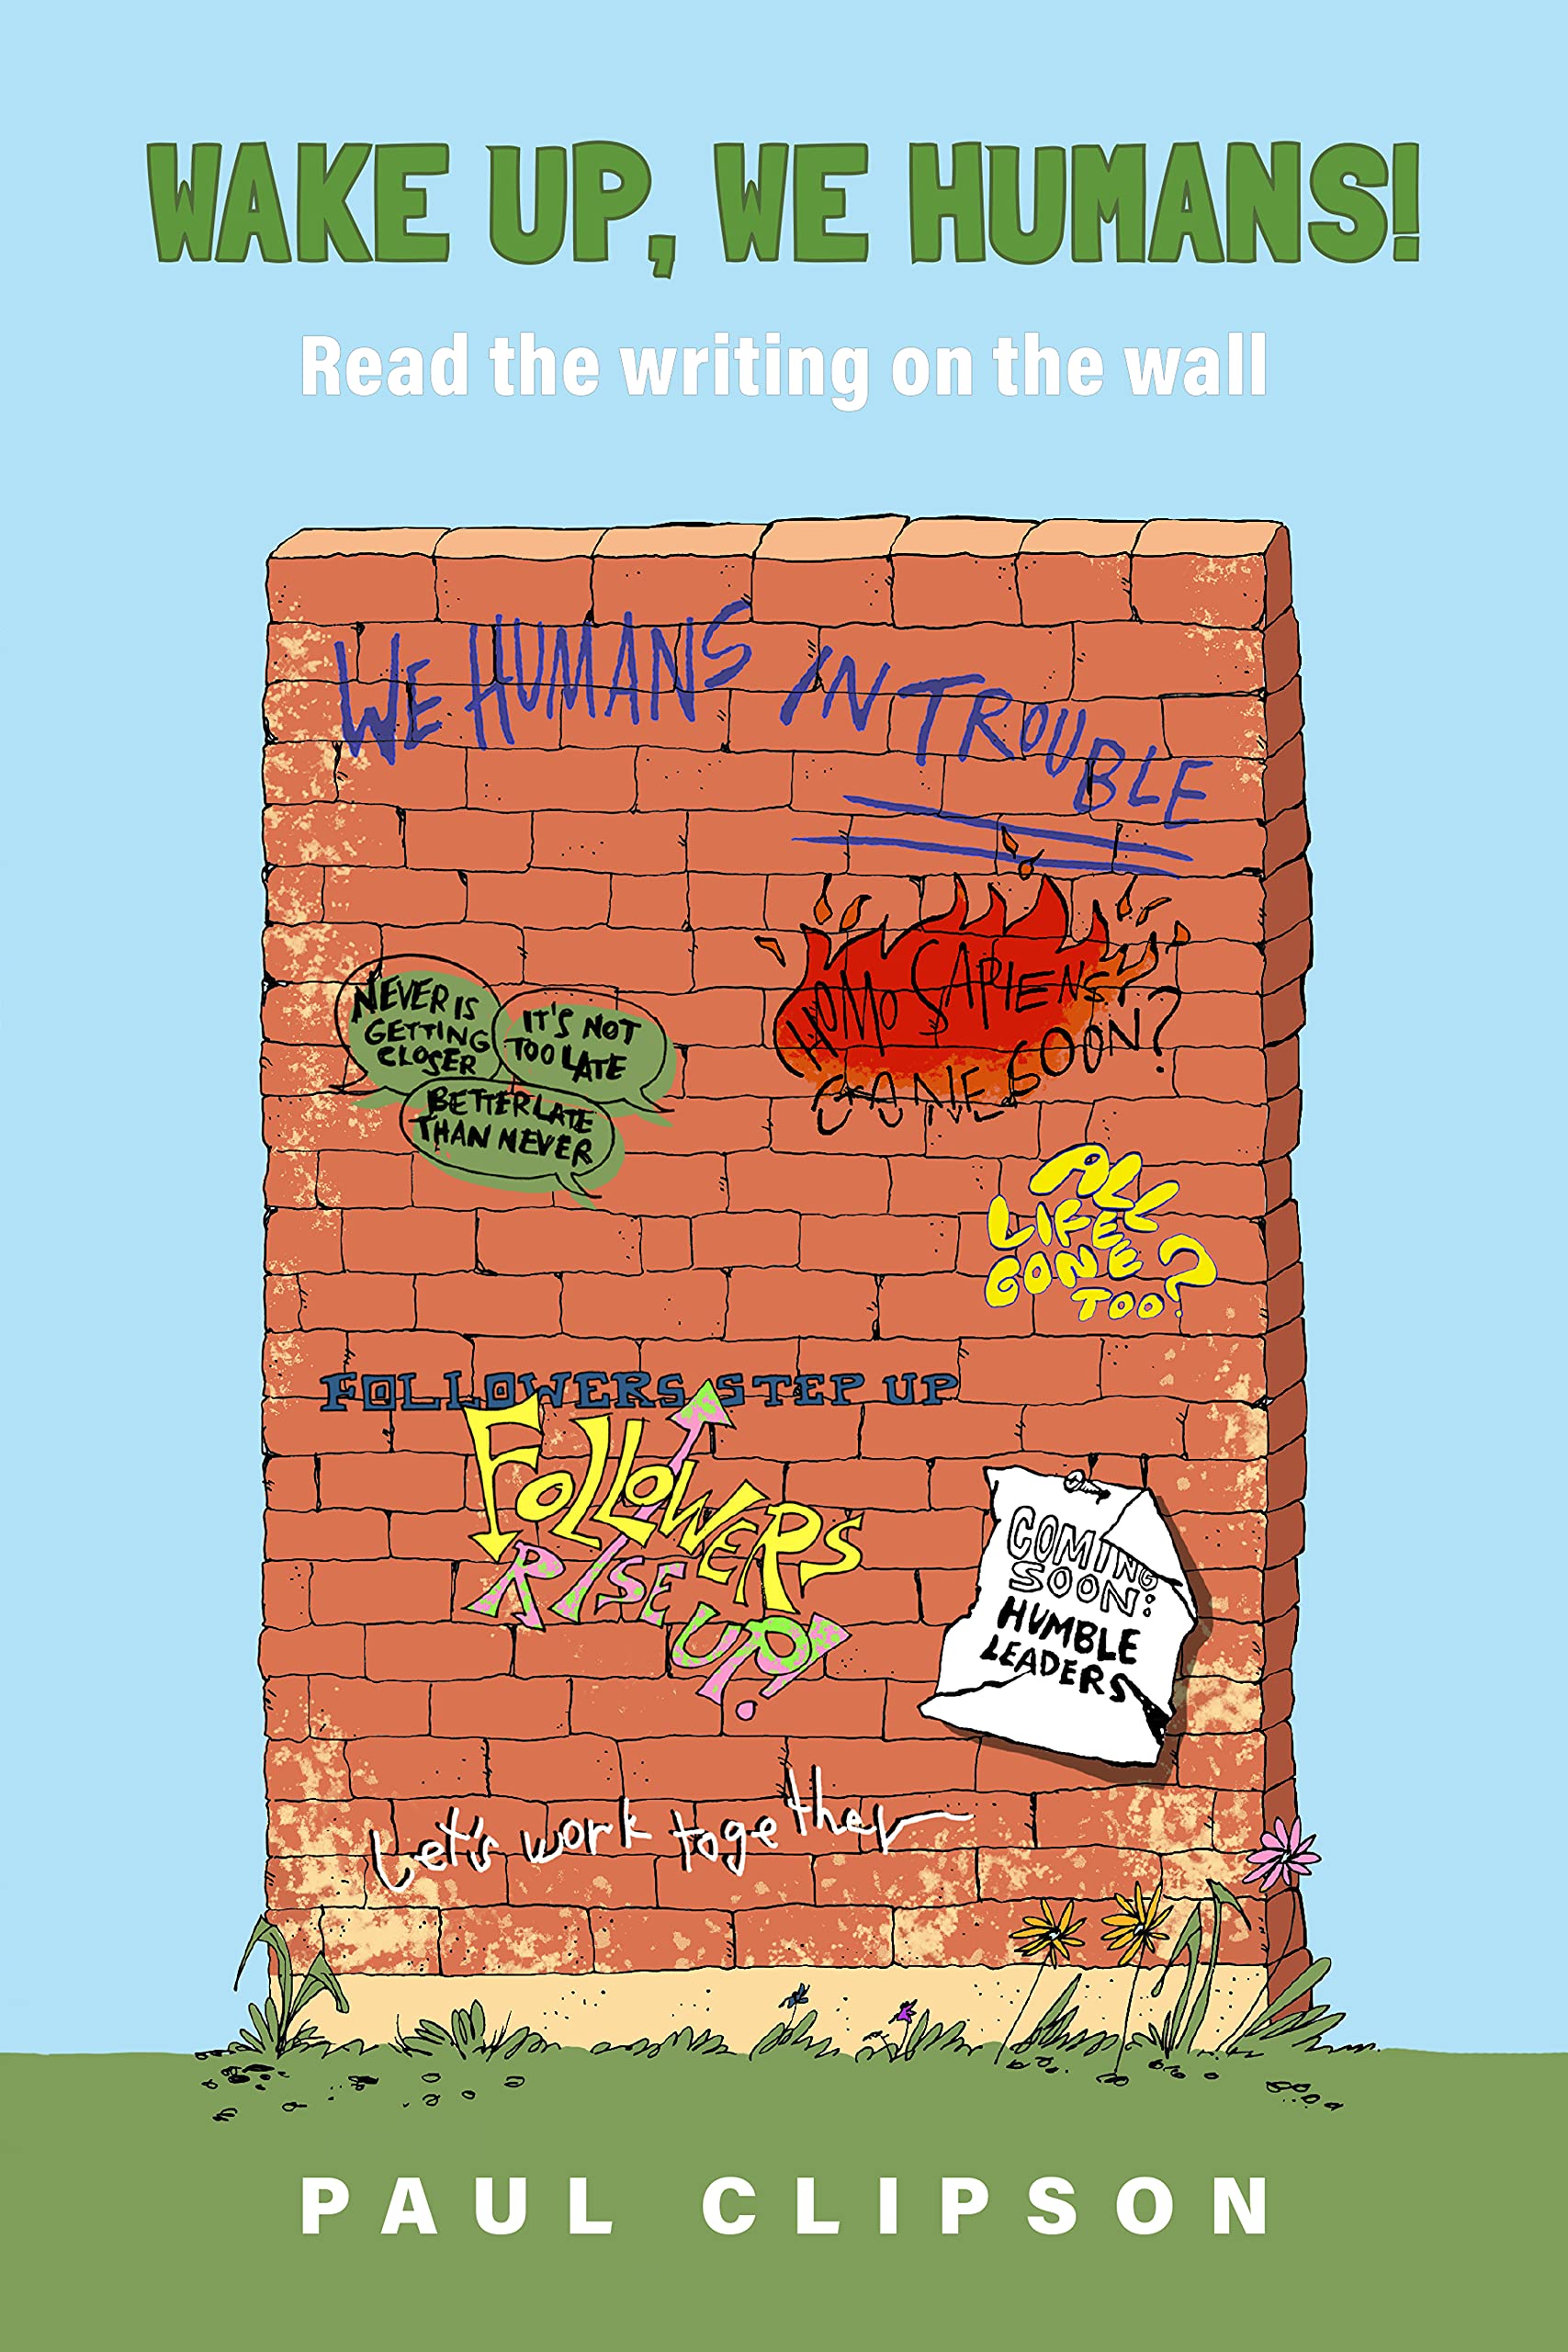 WAKE UP, WE HUMANS!
Read the writing on the wall
WE HUMANS IN TROUBLE
HOMO SAPIENS
GONE SOON?
NEVER IS
GETTING
CLOSER
IT'S NOT
TOO LATE
BETTER LATE
THAN NEVER
ALL
LIFE
GONE
TOO?
FOLLOWERS STEP UP
FOLLOWERS
RISE UP!
COMING
SOON:
HUMBLE
LEADERS
Let's work together
PAUL CLIPSON